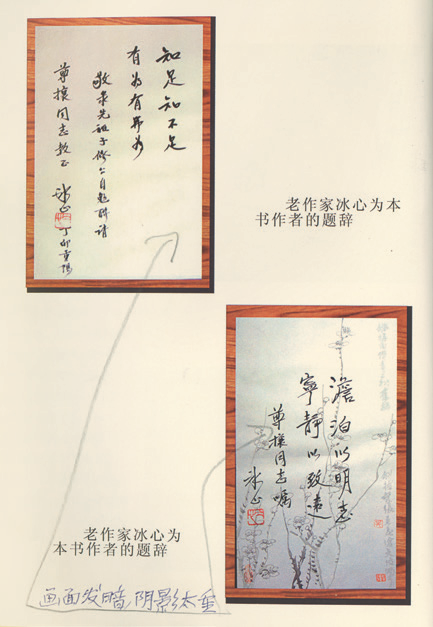 知足知不足
有为有弗为
敬录先祖子修公自题联请
尊攘同志教正
冰心
丁卯重阳
老作家冰心为本
书作者的题辞
澹泊以明志
宁静以致远
尊攘同志嘱
冰心
老作家冰心为
本书作者的题辞
画面发暗，阴影太重